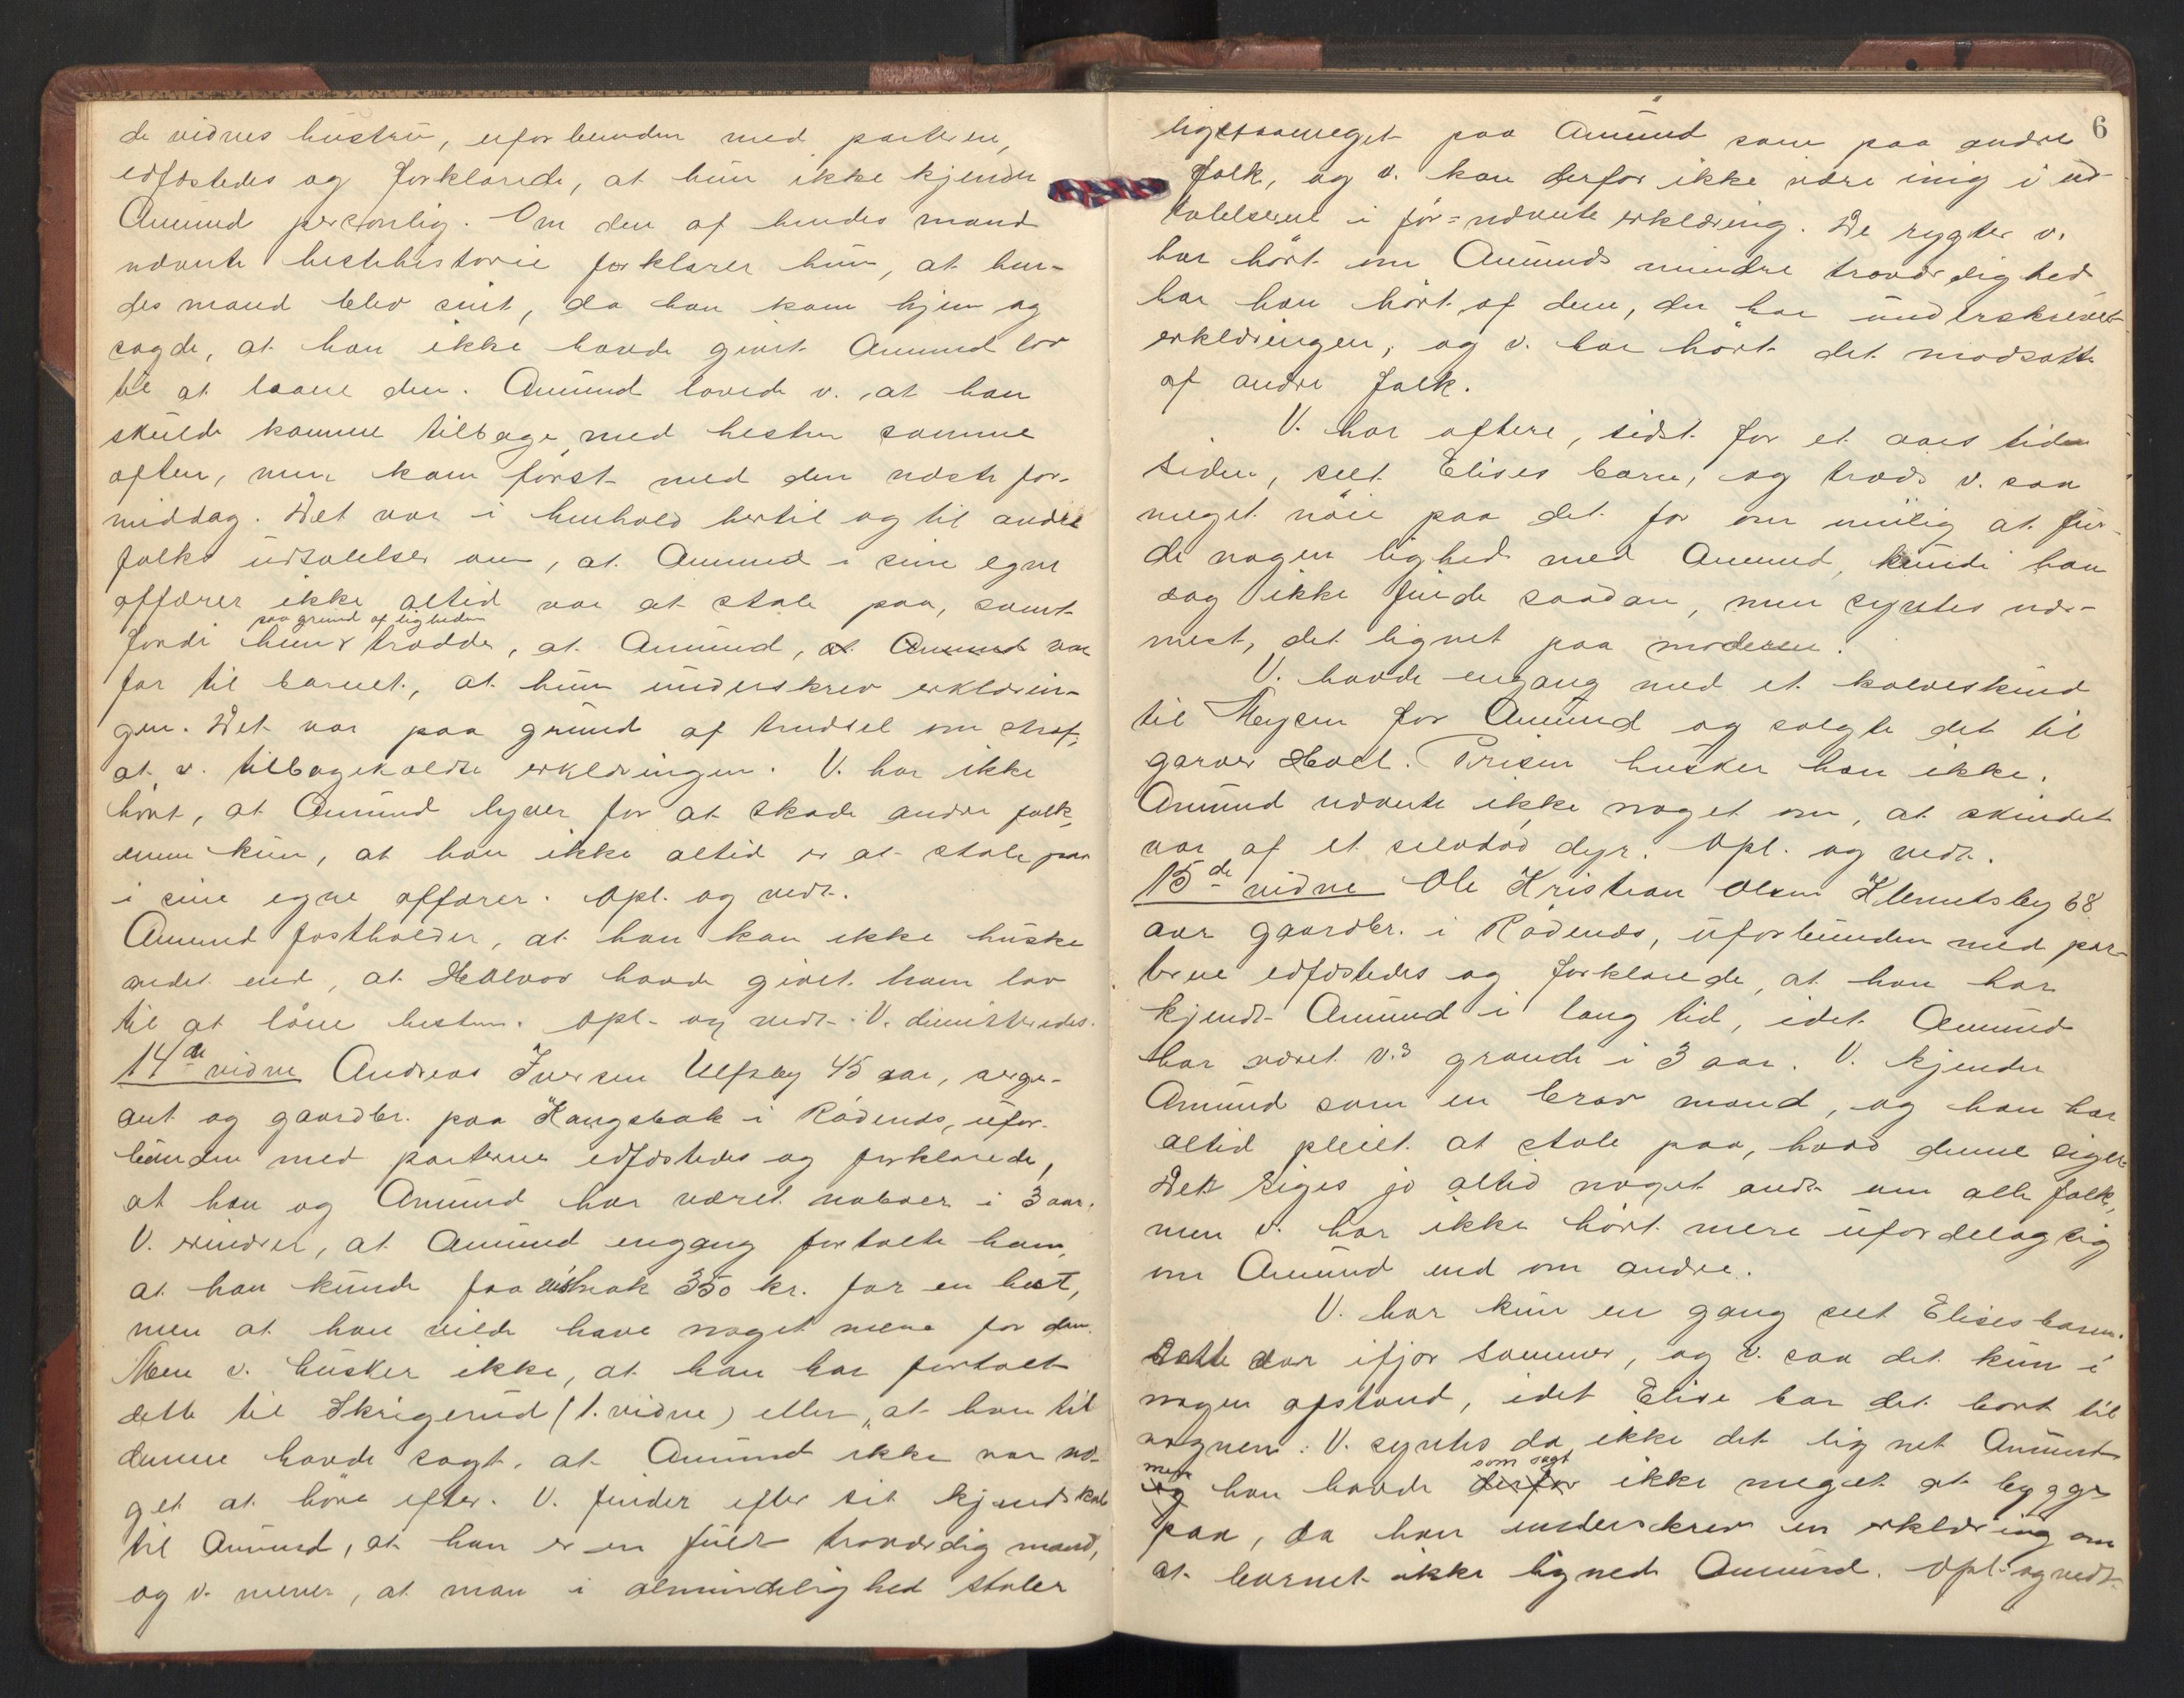 de vidnes hustru, uforbunden med parterne,
edfæstedes og forklarede, at hun ikke kjender
Amund personlig. Om den af hendes mand
nævnte hestehistorie forklarer hun, at hen-
des mand blev sint, da han kom hjem og
sagde, at han ikke havde givet Amund lov
til at laane den. Amund lovede v., at han
skulde komme tilbage med hesten samme
aften, men kom først med den næste for-
middag. Det var i henhold hertil og til andre
folks udtalelser om, at Amund i sine egne
affærer ikke altid var at stole paa, samt
paa grund af ligheden
fordi hun trodde, at Amund, at Amund var
far til barnet, at hun underskrev erklærin-
gen. Det var paa grund af trudsel om straf,
at v. tilbagekaldte erklæringen. V. har ikke
hørt, at Amund lyver for at skade andre folk,
men kun, at han ikke altid er at stole paa
i sine egne affærer. Opl. og vedt.
Amund fastholder, at han kan ikke huske
andet end, at Halvor havde givet ham lov
til at låne hesten. Opl. og vedt. V. dimitteredes.
14de vidne Andreas Iversen Ulfsby 45 aar, serge-
ant og gaardbr. paa Kangsbak i Rødenes, ufor-
bunden med parterne edfæstedes og forklarede,
at han og Amund har været naboer i 3 aar.
V. erindrer, at Amund engang fortalte ham,
at han kunde faa vistnok 350 kr. for en hest,
men at han vilde have noget mere for den.
Men v. husker ikke, at han har fortalt
dette til Skrigerud (1. vidne) eller, at han til
denne havde sagt, at Amund ikke var no-
get at høre efter. V. finder efter sit kjendskab
til Amund, at han er en fuldt troværdig mand,
og v. mener, at man i almindelighed stoler
6
ligesaameget paa Amund som paa andre
folk, og v. kan derfor ikke være enig i ud-
talelserne i før-nævnte erklæring. De rygter v.
har hørt om Amunds mindre troværdighed,
har han hørt af dem, der har underskrevet
erklæringen, og v. har hørt det modsatte
af andre folk.
V. har oftere, sidst for et aars tid
siden, seet Elises barn, og trods v. saa
meget nøie paa det for om mulig at fin-
de nogen lighed med Amund, kunde han
dog ikke finde saadan, men syntes nær-
mest, det lignet paa moderen.
V. havde engang med et kalveskind
til Mysen for Amund og solgte det til
garver Hoel. Prisen husker han ikke.
Amund nævnte ikke noget om, at skindet
var af et selvdød dyr. Opl. og vedt.
15de vidne Ole Kristian Olsen Klemetsby 68
aar gaardbr. i Rødenes, uforbunden med par-
terne edfæstedes og forklarede, at han har
kjendt Amund i lang tid, idet Amund
har været v.s grande i 3 aar. V. kjender
Amund som en brav mand, og han har
altid pleiet at stole paa, hvad denne siger.
Det siges jo altid noget ondt om alle folk,
men v. har ikke hørt mere ufordelagtig
om Amund end om andre.
V. har kun en gang seet Elises barn.
Dette var ifjor sommer, og v. saa det kun i
nogen afstand, idet Elise bar det bort til
vognen. V. syntes da, ikke det lignet Amund
men som sagt
og han havde derfor ikke meget at bygge
paa, da han underskrev en erklæring om
at barnet ikke lignede Amund. Opl. og vedt.